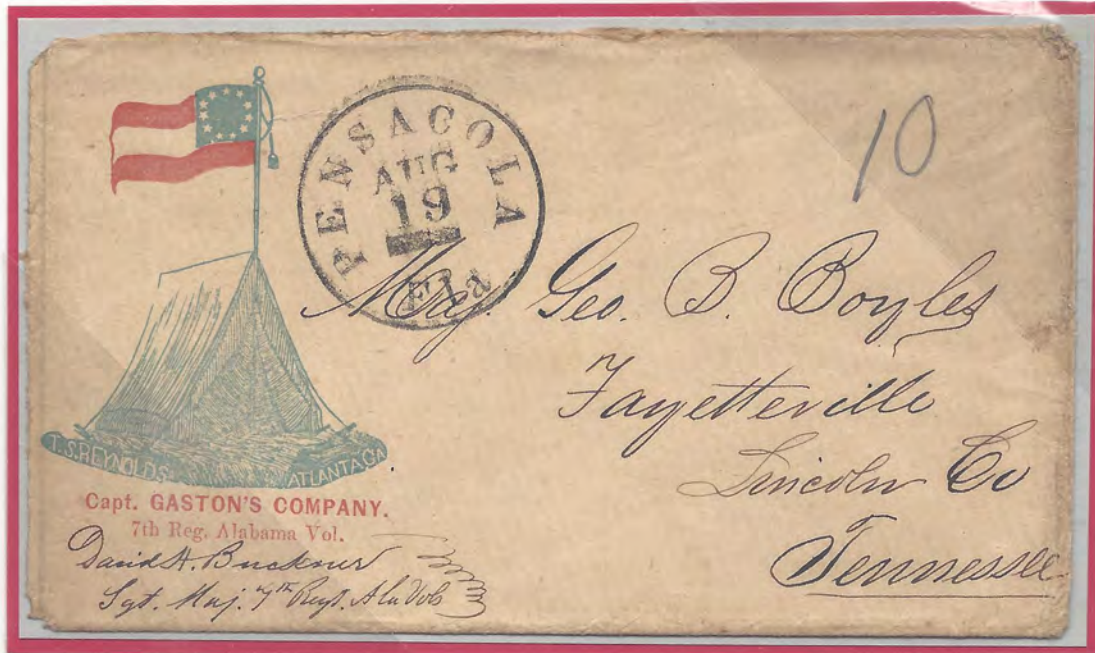 PENSACOLA
AUG
19
Fla
10
Maj. Geo. B. Boyles
Fayetteville
Lincoln Co
Tennessee
T. S. REYNOLDS ATLANTA GA
Capt. GASTON'S COMPANY.
7th Reg. Alabama Vol.
David H. Buckner
Sgt. Maj. 7th Regt. Ala Vols